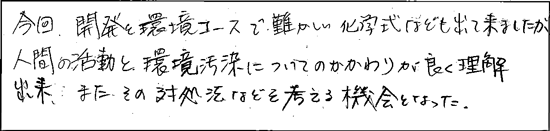 今回、開発と環境コースで難かしい化学式なども出て来ましたが
人間の活動と、環境汚染についてのかかわりが良く理解
出来、また、その対処法などを考える機会となった。